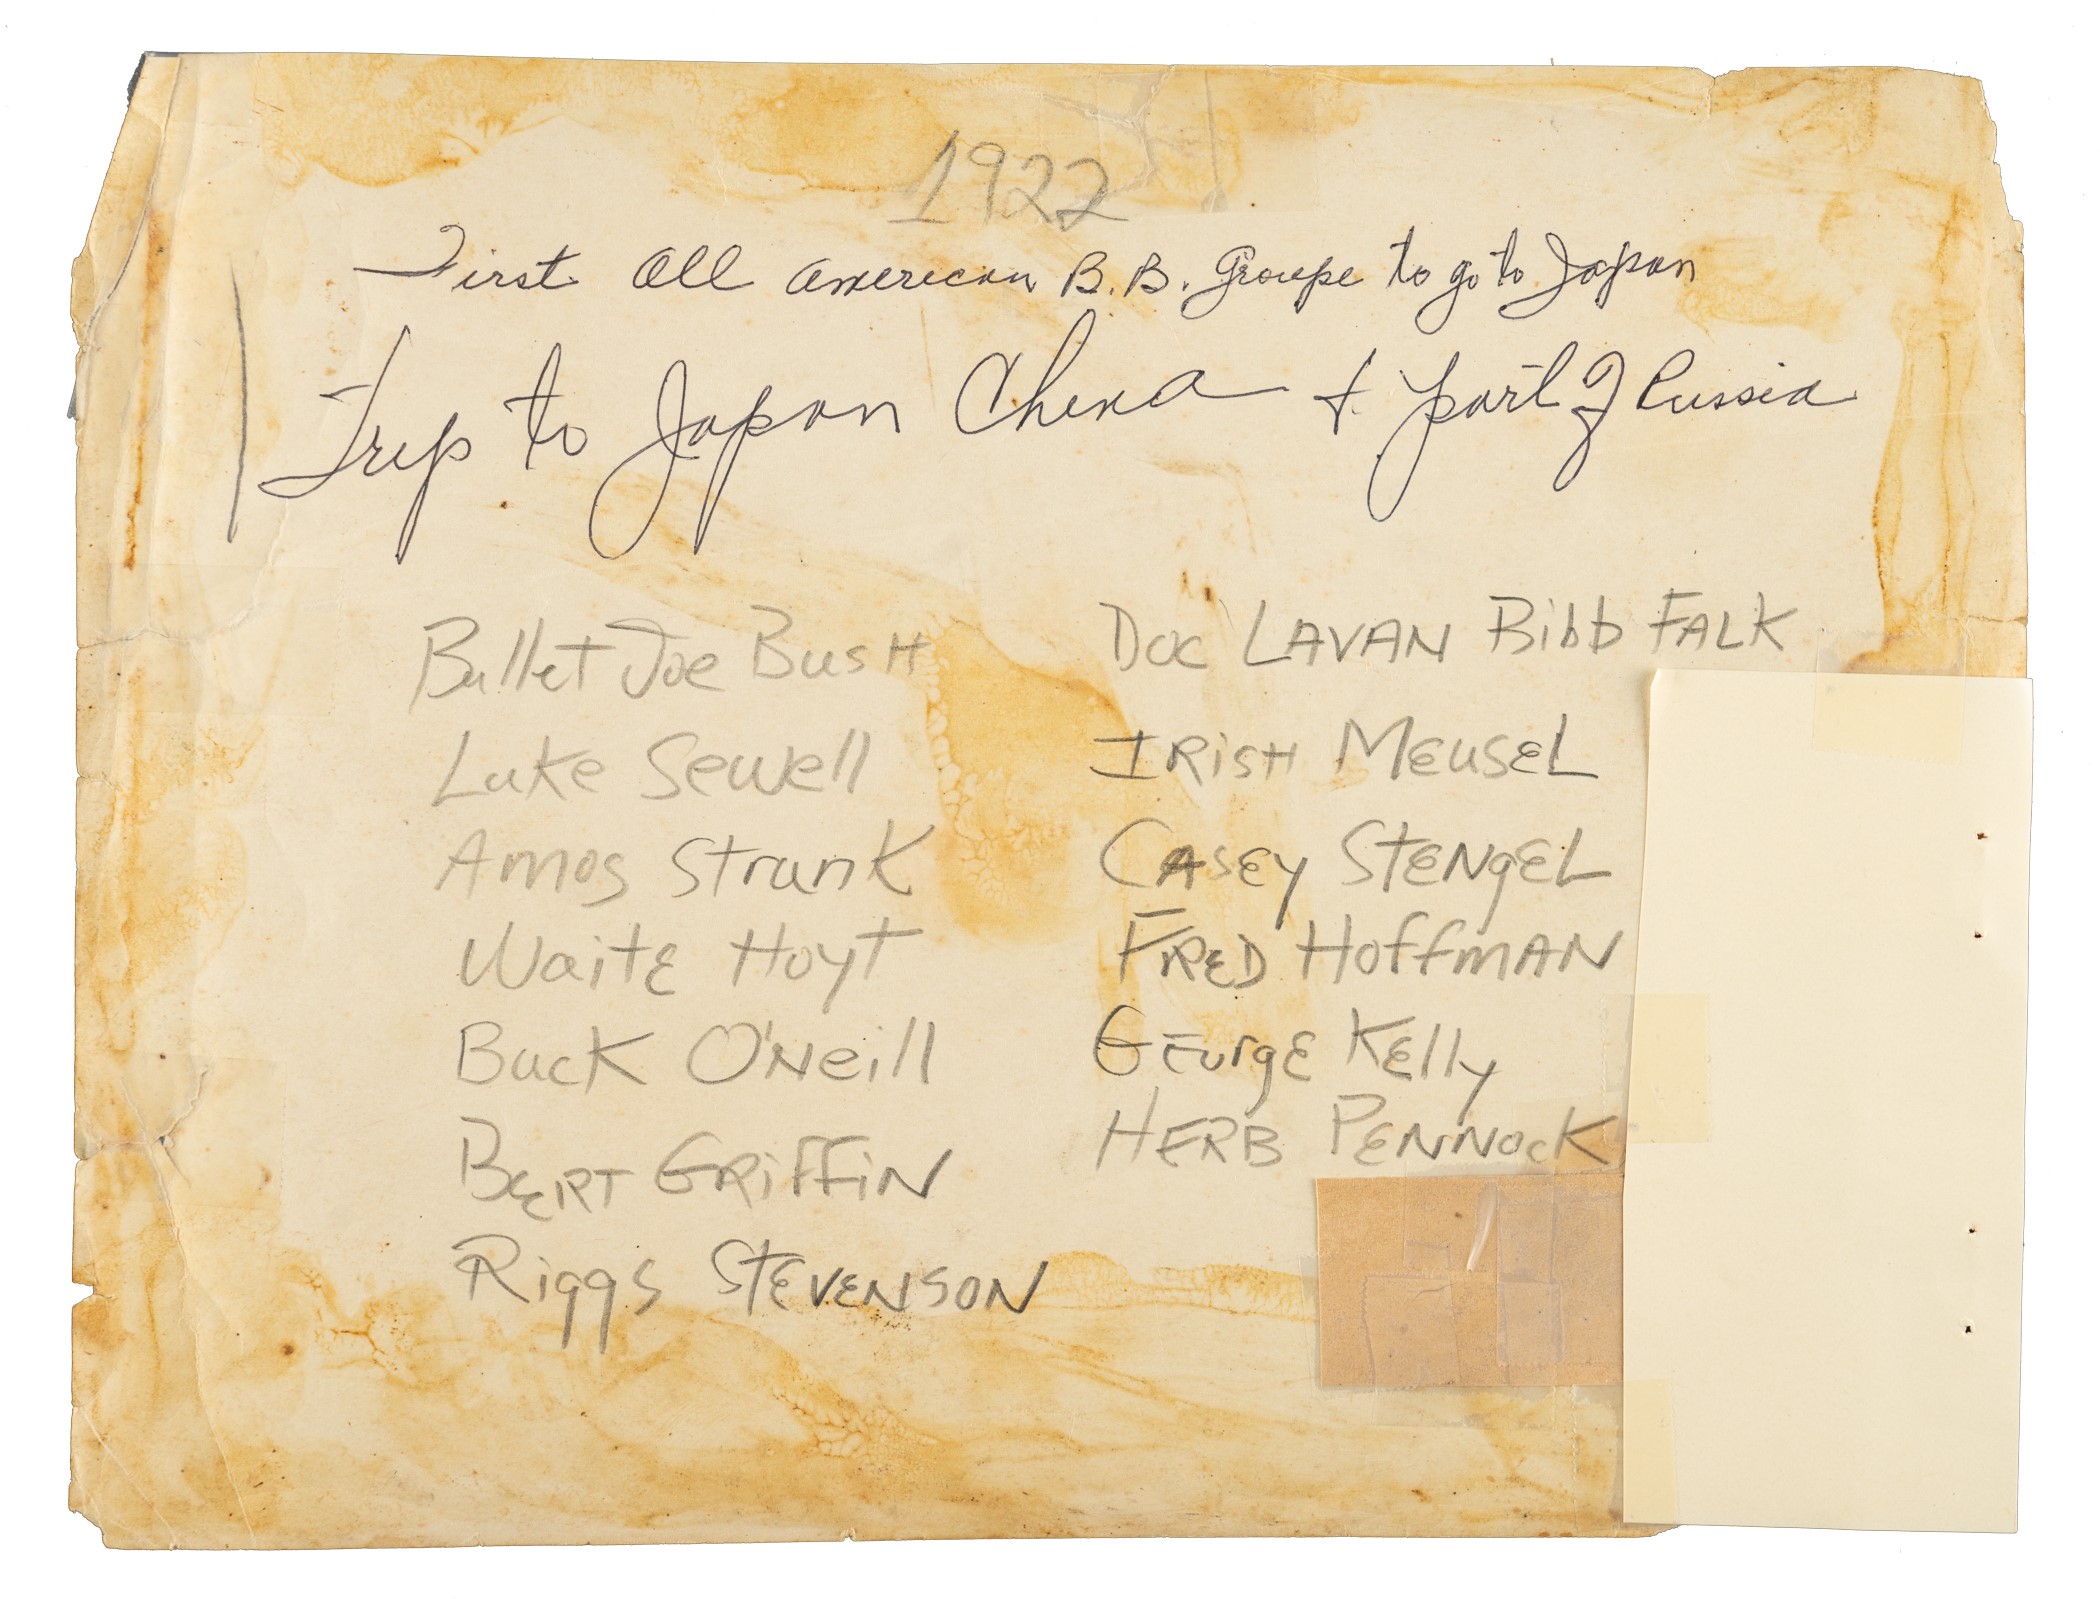 1922
First All American B.B. Groupe to go to Japan
Trip to Japan China & part of Russia
Bullet Joe Bush
Luke Sewell
Amos Strunk
Waite Hoyt
Buck O'Neill
BERT GRIFFIN
Riggs STEVENSON
Doc LAVAN Bibb FALK
IRISH MEUSEL
CASEY STENGEL
FRED HOFFMAN
GEORGE KELLY
HERB PENNOCK